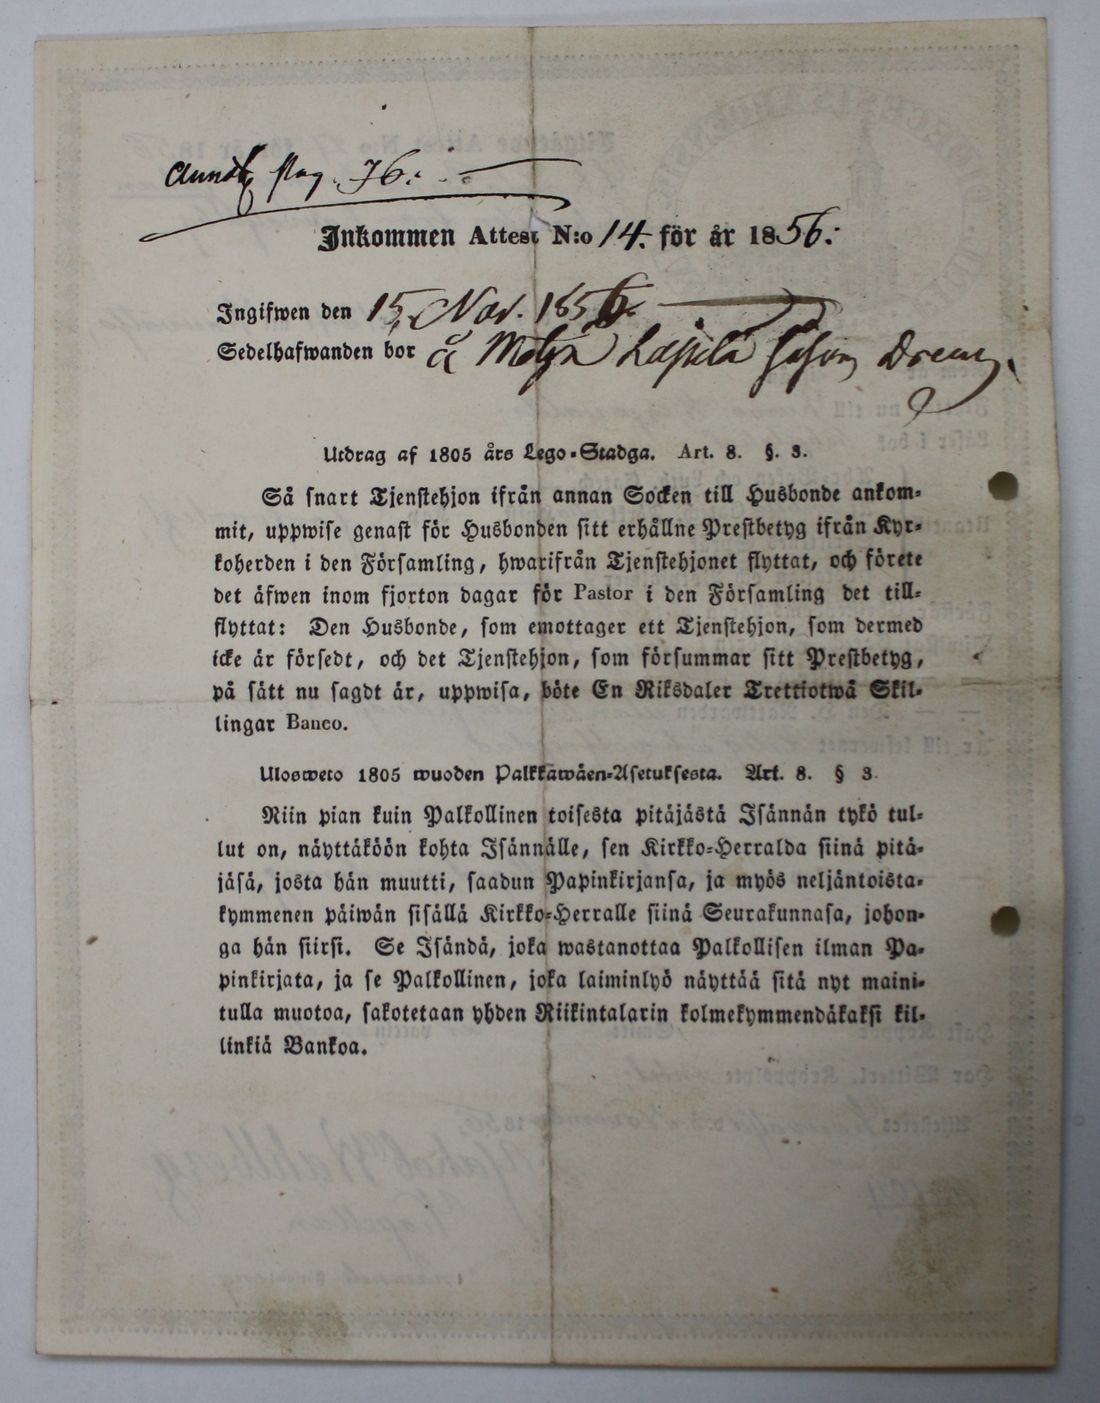 pag. 76.
Inkommen Attest N:o 14. för år 1856.
Ingifwen den 15 Nov. 1856.
Sedelhafwanden bor å
Utdrag af 1805 års Lego-Stadga. Art. 8. §. 3.
Så snart Tjenstehjon ifrån annan Socken till Husbonde ankom-
mit, uppwise genast för Husbonden sitt erhållne Prestbetyg ifrån Kyr-
koherden i den Församling, hwarifrån Tjenstehjonet flyttat, och förete
det äfwen inom fjorton dagar för Pastor i den Församling det till-
flyttat: Den Husbonde, som emottager ett Tjenstehjon, som dermed
icke är försedt, och det Tjenstehjon, som försummar sitt Prestbetyg,
på sätt nu sagdt är, uppwisa, böte En Riksdaler Trettiotwå Skil-
lingar Banco.
Ulosweto 1805 wuoden Palkkawäen-Asetuksesta. Art. 8. § 3
Niin pian kuin Palkollinen toisesta pitäjästä Isännän tykö tul-
lut on, näyttäköön kohta Isännälle, sen Kirkko-Herralda siinä pitä-
jäsä, josta hän muutti, saadun Papinkirjansa, ja myös neljäntoista-
kymmenen päiwän sisällä Kirkko-Herralle siinä Seurakunnasa, johon-
ga hän siirsi. Se Isändä, joka wastanottaa Palkollisen ilman Pa-
pinkirjata, ja se Palkollinen, joka laiminlyö näyttää sitä nyt maini-
tulla muotoa, sakotetaan yhden Riikintalarin kolmekymmendäkaksi kil-
linkiä Bankoa.